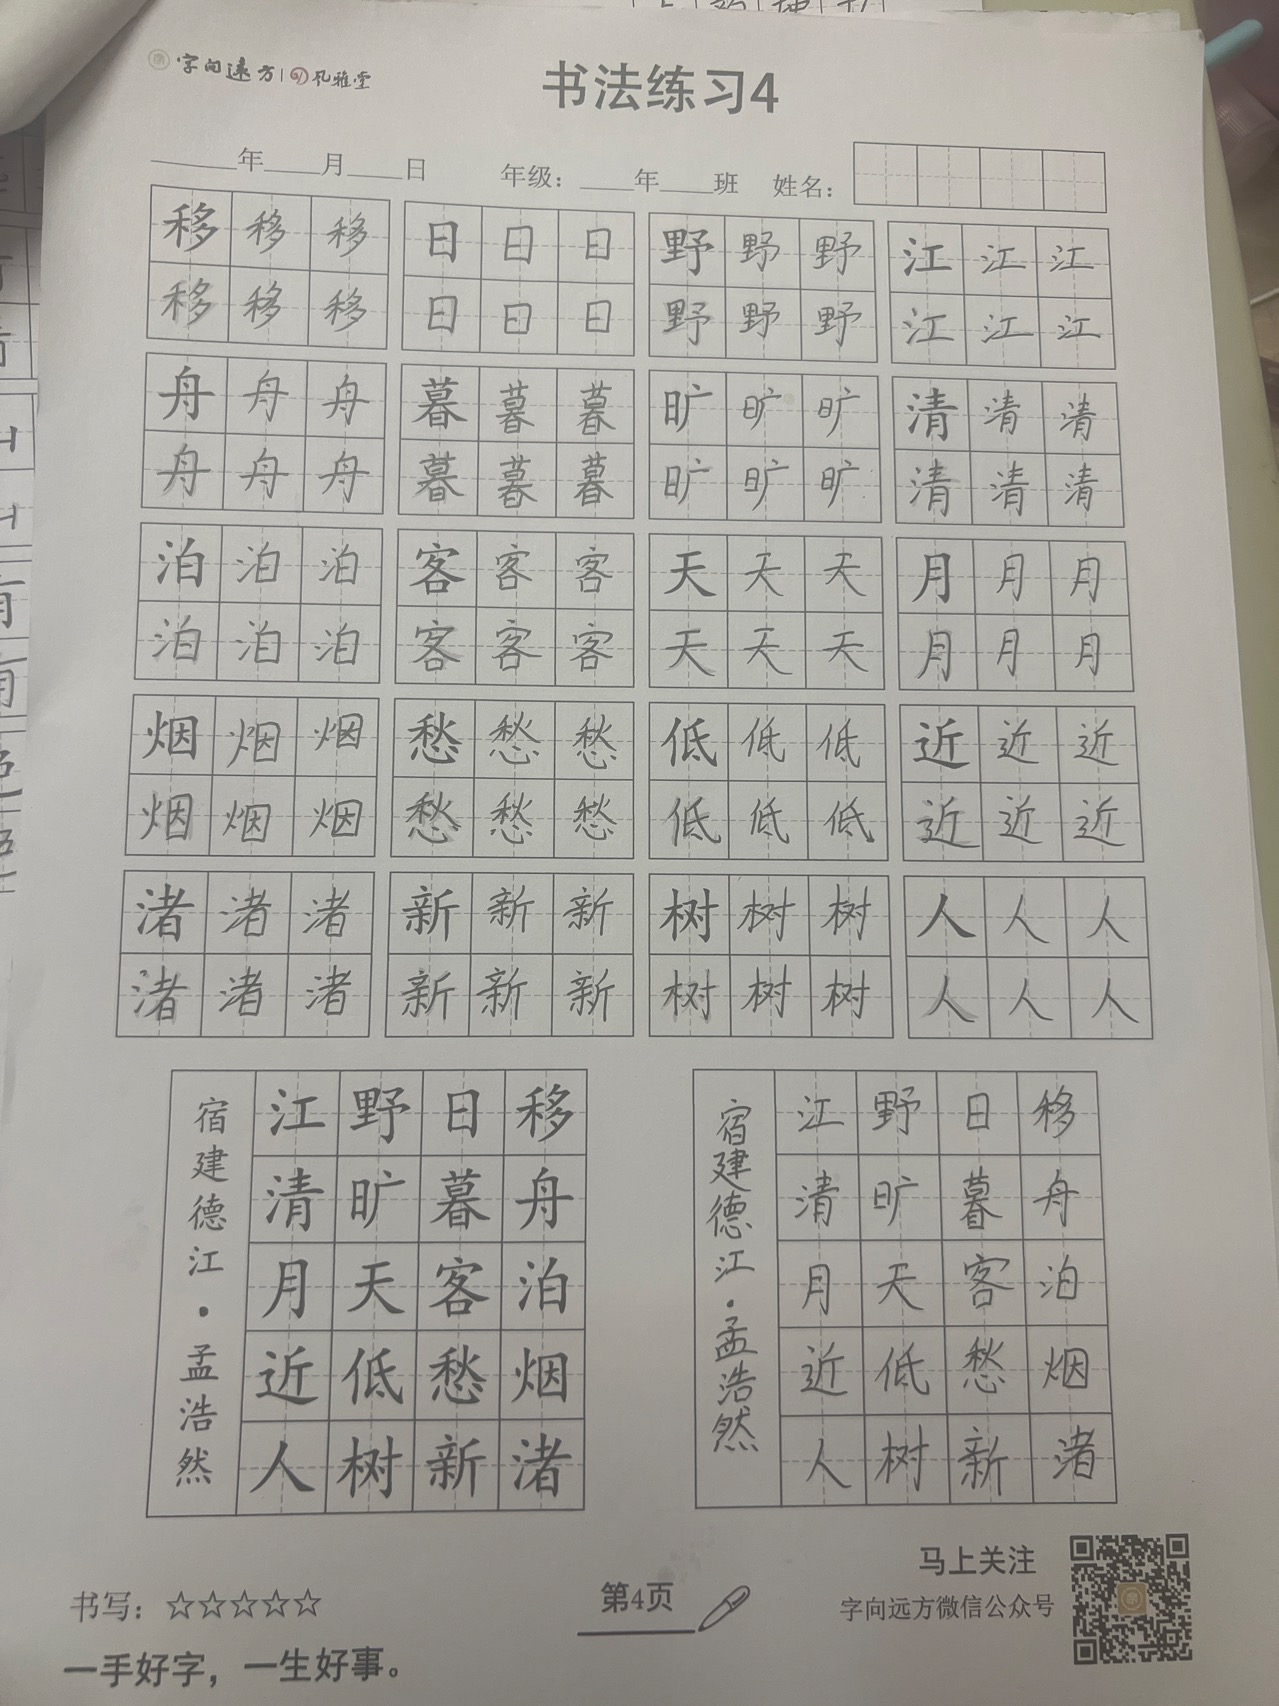 字向远方 | 孔雅堂
书法练习4
____年____月____日 年级：____年____班 姓名：
移移移 日日日 野野野 江江江
移移移 日日日 野野野 江江江
舟舟舟 暮暮暮 旷旷旷 清清清
舟舟舟 暮暮暮 旷旷旷 清清清
泊泊泊 客客客 天天天 月月月
泊泊泊 客客客 天天天 月月月
烟烟烟 愁愁愁 低低低 近近近
烟烟烟 愁愁愁 低低低 近近近
渚渚渚 新新新 树树树 人人人
渚渚渚 新新新 树树树 人人人
移舟泊烟渚
日暮客愁新
野旷天低树
江清月近人
宿建德江·孟浩然
移舟泊烟渚
日暮客愁新
野旷天低树
江清月近人
宿建德江·孟浩然
马上关注
书写：☆☆☆☆☆
第4页
字向远方微信公众号
一手好字，一生好事。